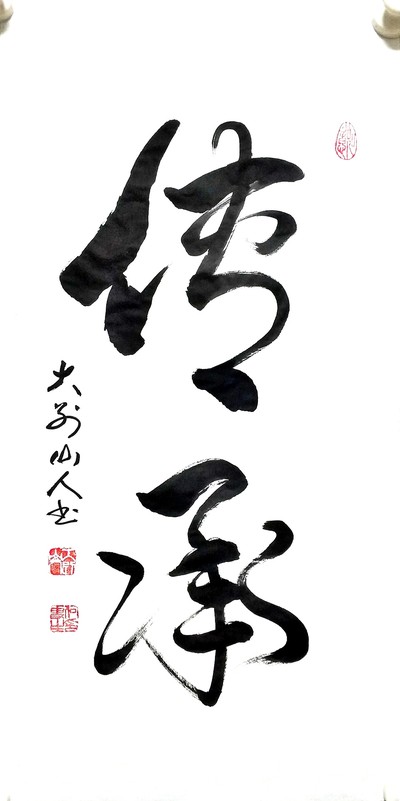 传承
大别山人书